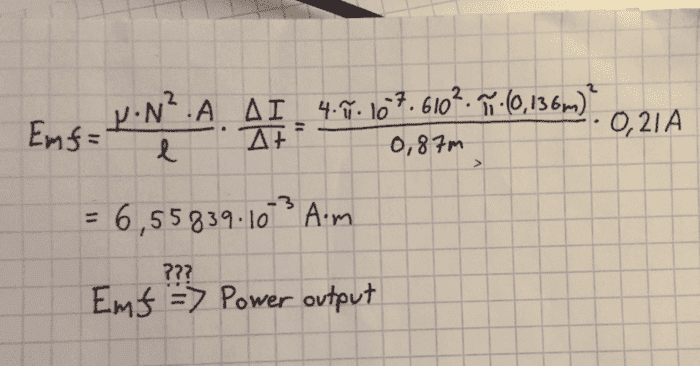 Emf = μ·N²·A / l · ΔI / Δt = 4·π·10⁻⁷·610²·π·(0,136m)² / 0,87m · 0,21A
= 6,55839·10⁻³ A·m
???
Emf => Power output